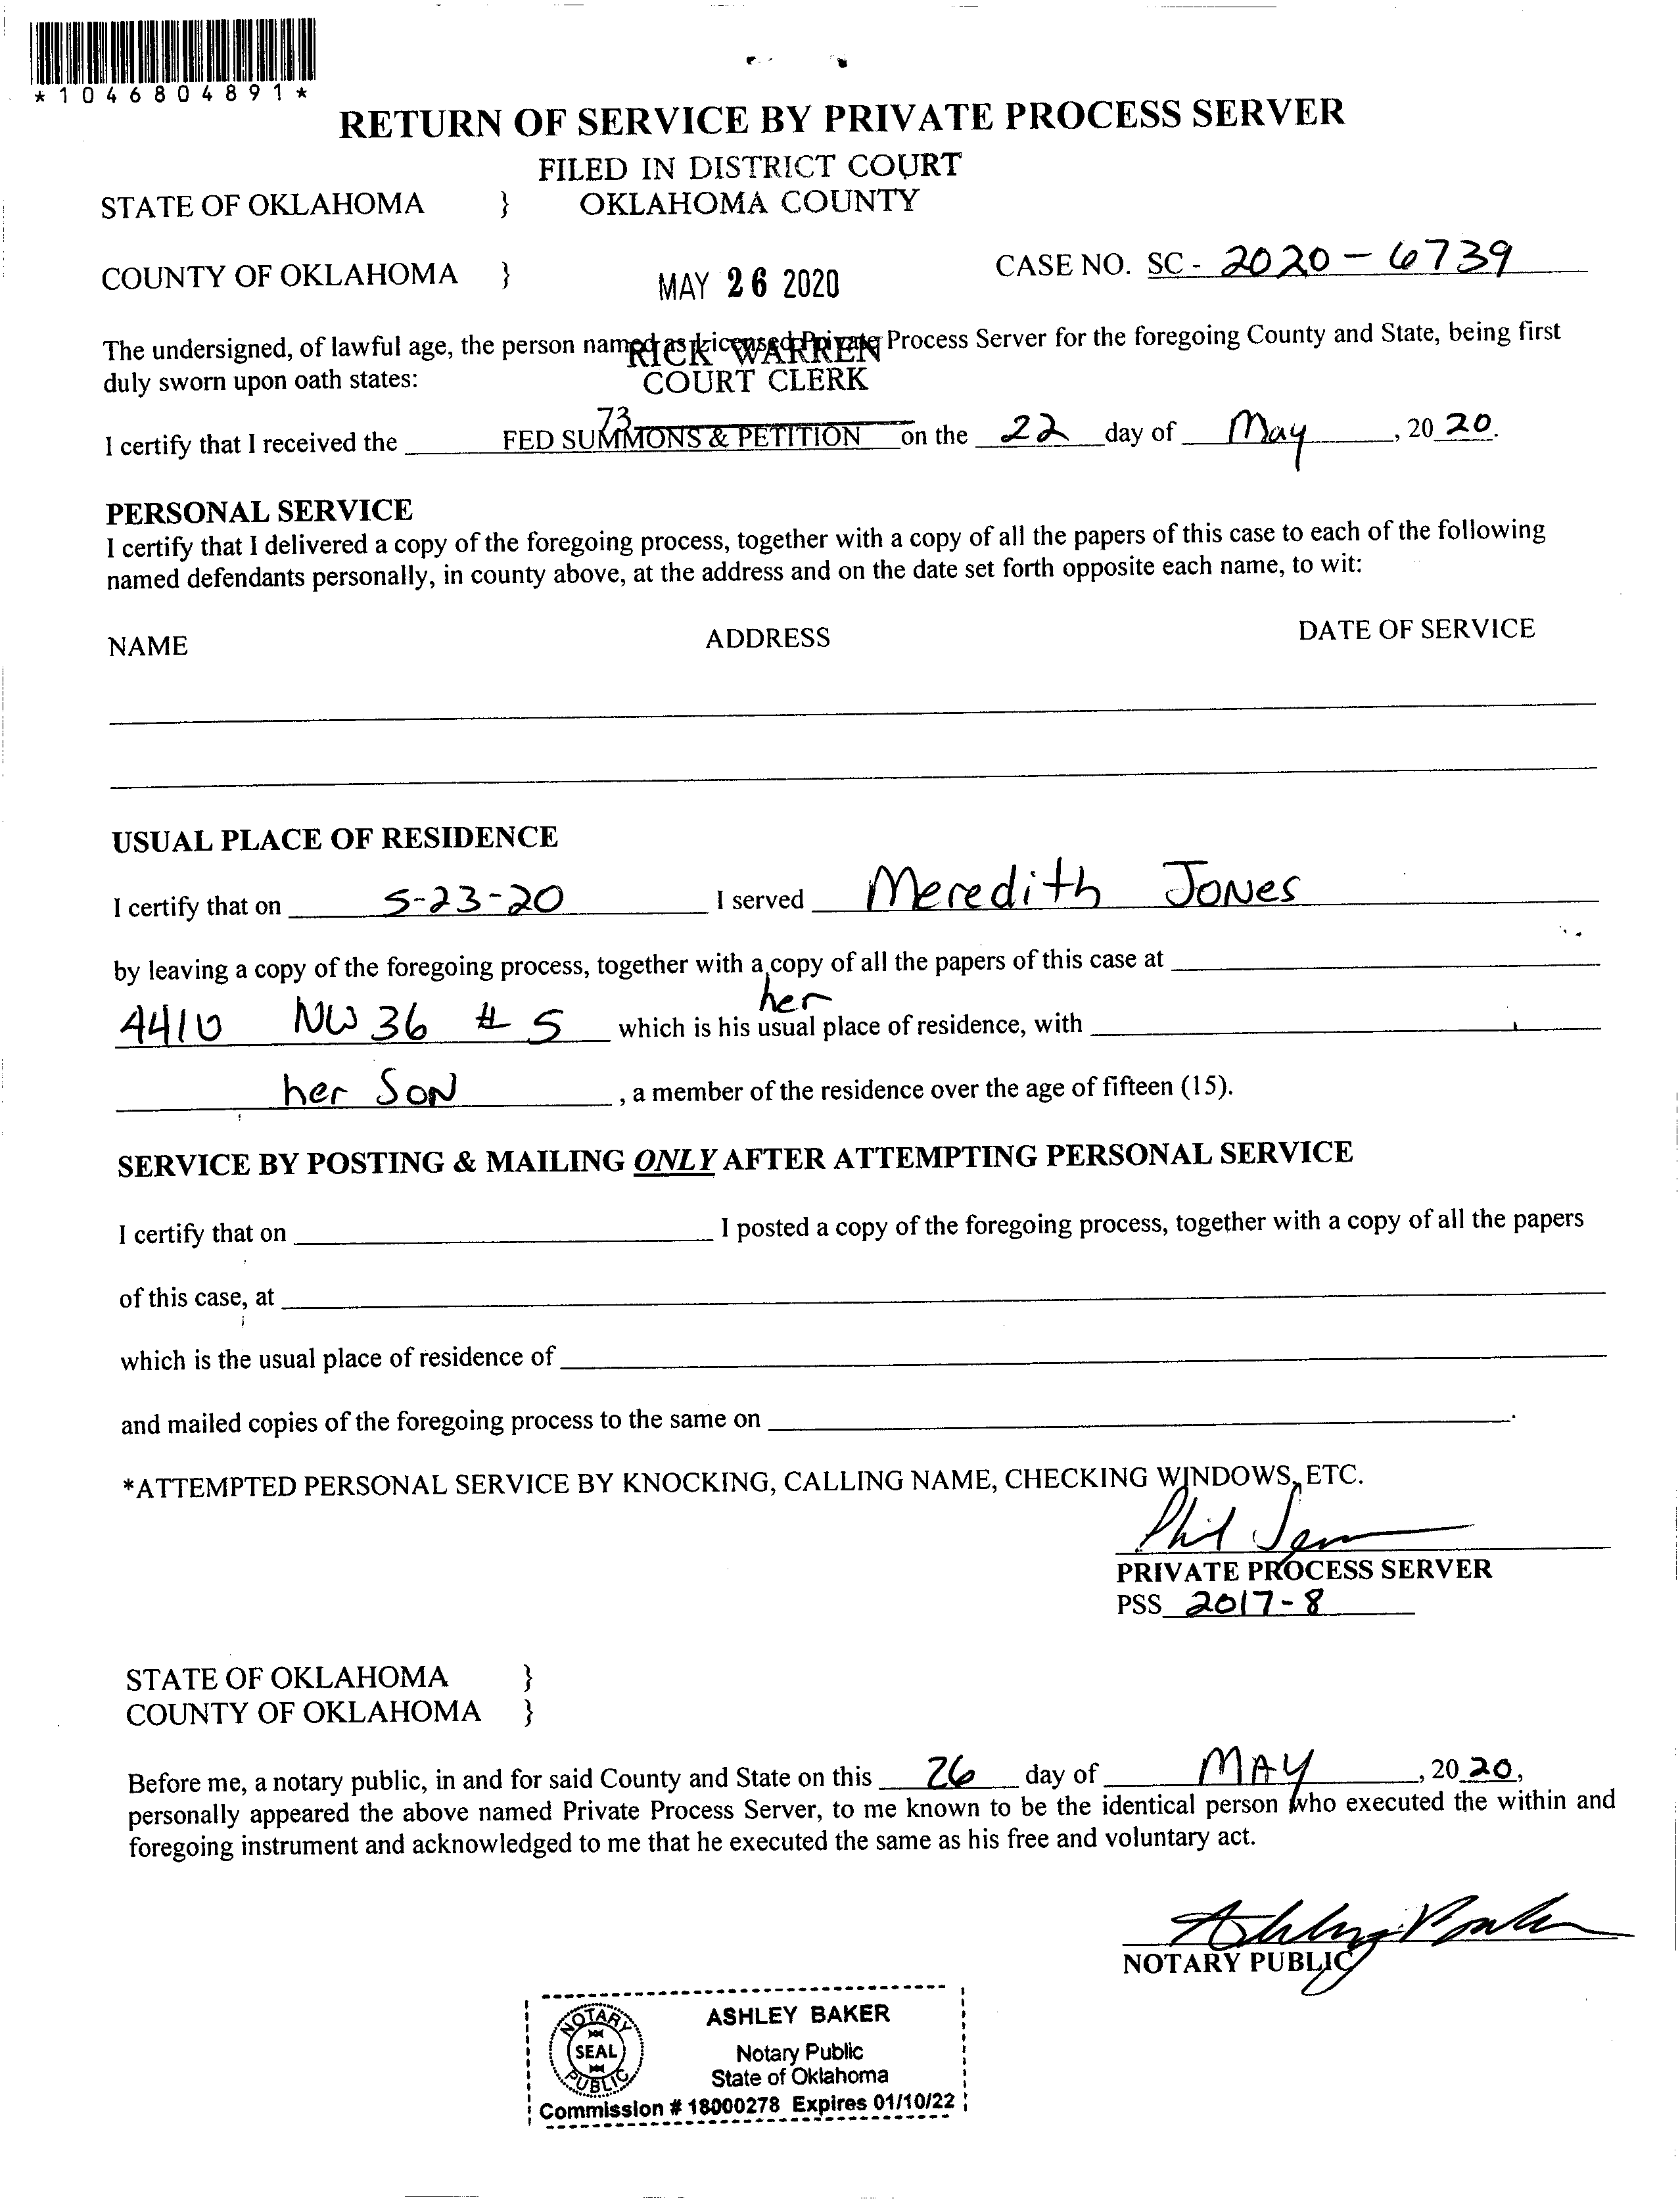 *1046804891*
RETURN OF SERVICE BY PRIVATE PROCESS SERVER
FILED IN DISTRICT COURT
STATE OF OKLAHOMA } OKLAHOMA COUNTY
COUNTY OF OKLAHOMA } MAY 26 2020 CASE NO. SC - 2020 - 6739
The undersigned, of lawful age, the person named as Licensed Private Process Server for the foregoing County and State, being first
RICK WARREN
duly sworn upon oath states: COURT CLERK
73
I certify that I received the FED SUMMONS & PETITION on the 22 day of May, 2020.
PERSONAL SERVICE
I certify that I delivered a copy of the foregoing process, together with a copy of all the papers of this case to each of the following
named defendants personally, in county above, at the address and on the date set forth opposite each name, to wit:
NAME ADDRESS DATE OF SERVICE
USUAL PLACE OF RESIDENCE
I certify that on 5-23-20 I served Meredith Jones
by leaving a copy of the foregoing process, together with a copy of all the papers of this case at
her
NW 36 # 5 which is his usual place of residence, with
her Son, a member of the residence over the age of fifteen (15).
SERVICE BY POSTING & MAILING ONLY AFTER ATTEMPTING PERSONAL SERVICE
I certify that on I posted a copy of the foregoing process, together with a copy of all the papers
of this case, at
which is the usual place of residence of
and mailed copies of the foregoing process to the same on .
*ATTEMPTED PERSONAL SERVICE BY KNOCKING, CALLING NAME, CHECKING WINDOWS, ETC.
Phil
PRIVATE PROCESS SERVER
PSS 2017-8
STATE OF OKLAHOMA }
COUNTY OF OKLAHOMA }
Before me, a notary public, in and for said County and State on this 26 day of MAY, 2020,
personally appeared the above named Private Process Server, to me known to be the identical person who executed the within and
foregoing instrument and acknowledged to me that he executed the same as his free and voluntary act.
Ashley Baker
NOTARY PUBLIC
NOTARY PUBLIC SEAL
ASHLEY BAKER
Notary Public
State of Oklahoma
Commission # 18000278 Expires 01/10/22